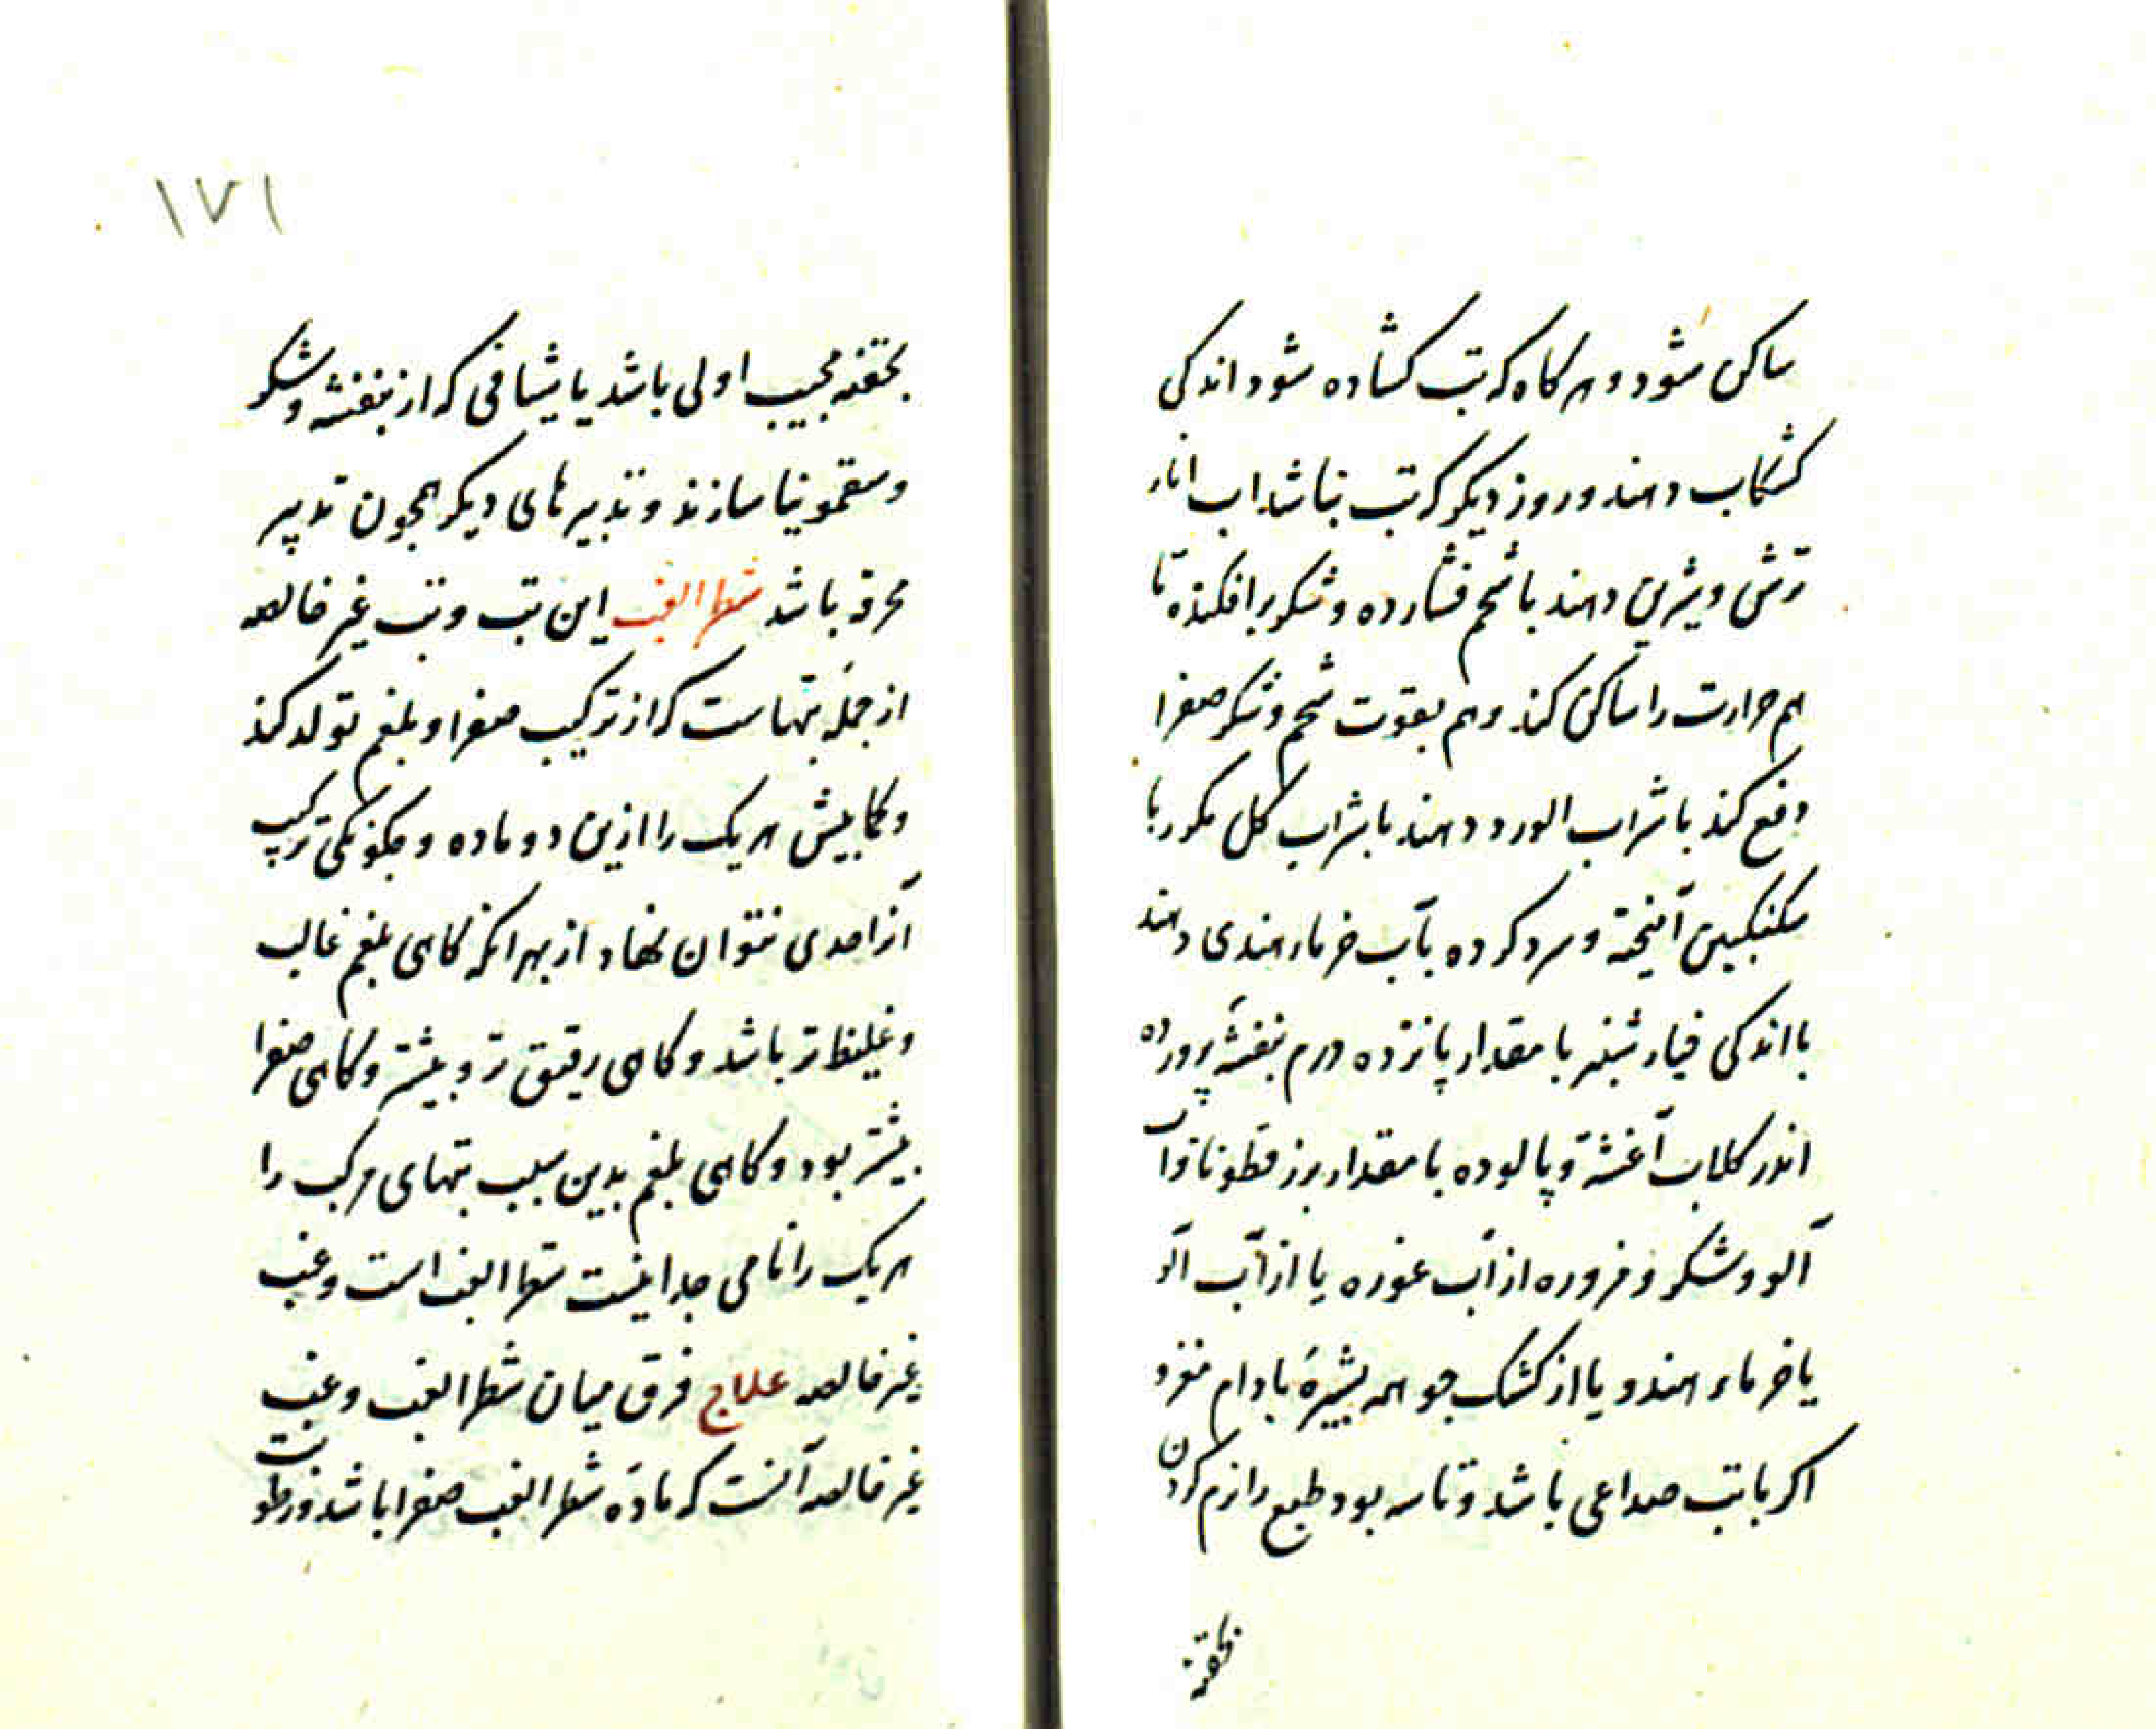 ساکن شود و هر کاه که تب کشاده شود اندکی
کشکاب دهند و روز دیکر که تب نباشد اب انار
ترش و شیرین دهند با شحم فشارده و شکر برافکنده تا
هم حرارت را ساکن کند و هم بقوت شحم و شکر صفرا
دفع کند یا شراب الورد دهند یا شراب کل مکرر با
سکنکبین آمیخته و سرد کرده بآب خرماء هندی دهند
با اندکی خیار شنبر با مقدار پانزده درم بنفشه پرورده
اندر کلاب آغشته و پالوده با مقدار بزر قطونا و آب
آلو و شکر و مزوره از آب غوره یا از آب آلو
یا خرماء هندو یا از کشک جو همه بشیرهٔ بادام مغز و
اکر با تب صداعی باشد و تاسه بود طبع را نرم کردن
بحقنه
١٧١
بحقنه مجیب اولی باشد یا شیافی که از بنفشه و شکر
و سقمونیا سازند و تدبیرهای دیکر همجون تدبیر
محرقه باشد شطر الغب این تب و تب غیر خالصه
از جملهٔ تبهاست که از ترکیب صفرا و بلغم تولد کند
و کمابیش هر یک را ازین دو ماده و جکونکی ترکیب
آنرا حدی نتوان نهاد از بهر انکه کاهی بلغم غالب
و غلیظ تر باشد و کاهی رقیق تر و بیشتر و کاهی صفرا
بیشتر بود و کاهی بلغم بدین سبب تبهای مرکب را
هر یک را نامی جدا نیست شطر الغب است و غب
غیر خالصه علاج فرق میان شطر الغب و غب
غیر خالصه آنست که مادهٔ شطر الغب صفرا باشد و رطوبت